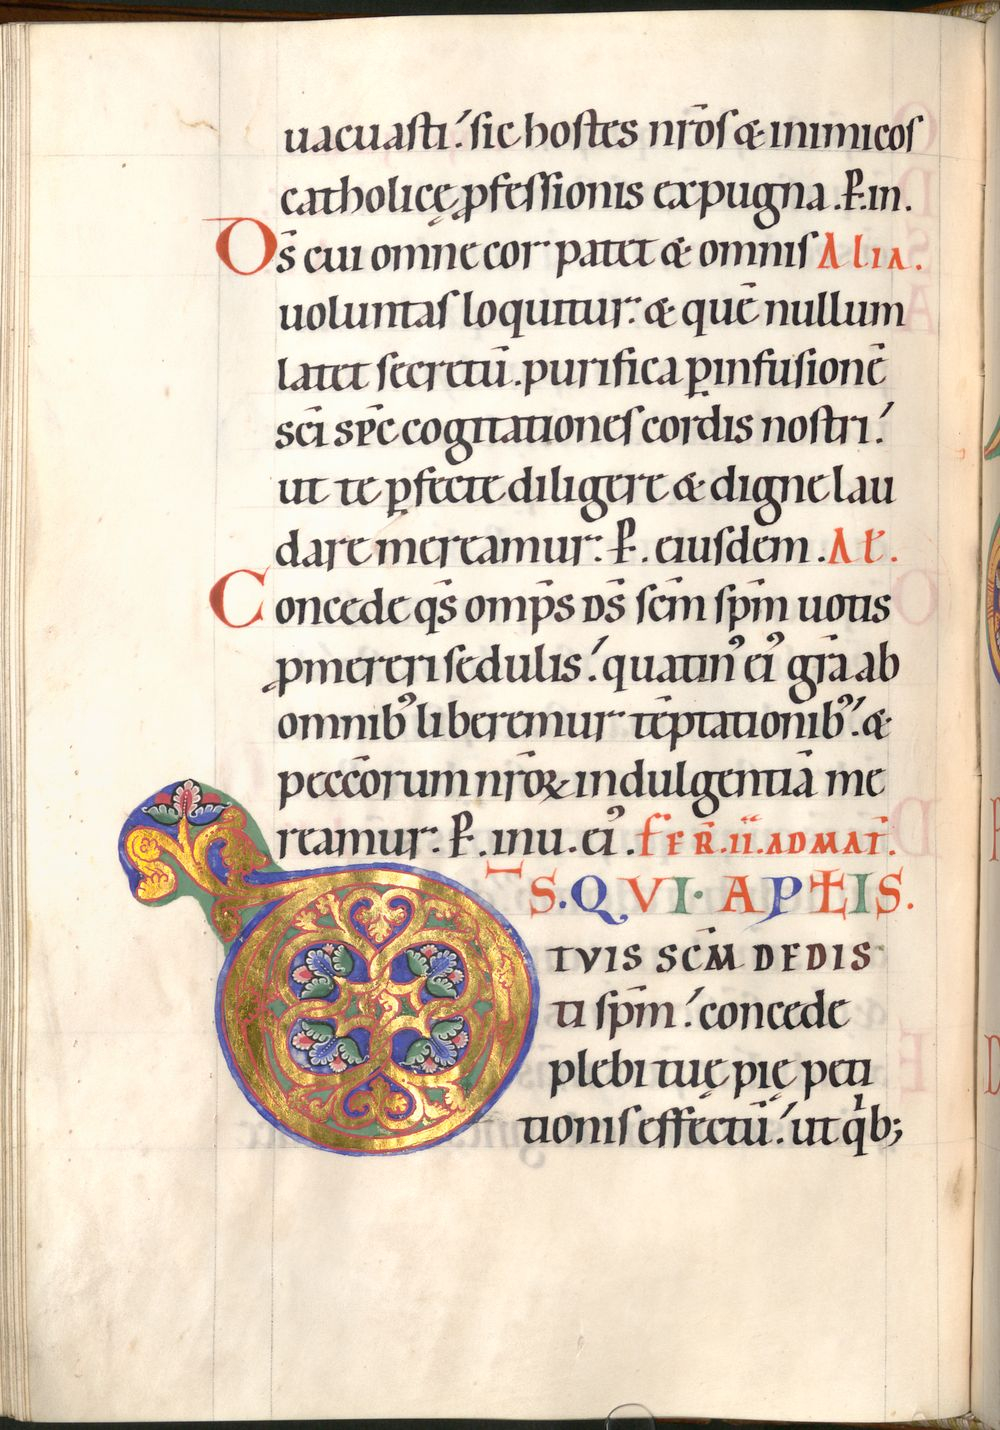 uacuasti. sic hostes nr̄os & inimicos
catholicę ꝓfessionis expugna. P̄. in.
Ds̄ cui omne cor patet & omnis Alia.
uoluntas loquitur: & quē nullum
latet secretū. purifica ꝑ infusionē
sc̄i sp̄c cogitationes cordis nostri.
ut te ꝑfecte diligere & digne lau
dare mereamur: P̄. eiusdem. Al̄.
Concede qs̄ omp̄s ds̄ sc̄m sp̄m uotis
ꝓmereri sedulis. quatinꝰ eiꝰ gr̄a ab
omnibꝰ liberemur tēptationibꝰ. &
peccōrum nr̄oꝝ indulgentiā me
reamur: P̄. in u. eiꝰ. FER̄. II. AD MAT̄.
D̄S. QVI. APĪS.
TVIS SC̄M DEDIS
ti sp̄m. concede
plebi tuę pię peti
tionis effectū. ut qͥb;